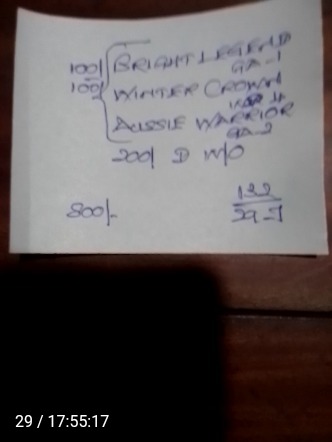 100/ BRIGHT LEGEND
GA-1
100/ WINTER CROWN
AUSSIE WARRIOR
GA-2
200/ D W/O
800/-
122
29-7
29 / 17:55:17